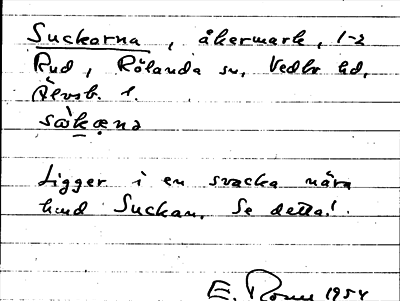 Suckarna, åkermark, 1-2
Rud, Rölanda sn, Vedbo hd,
Älvsb. l.
sàkæna
Ligger i en svacka nära
hmd Suckan. Se detta!
E. 1954